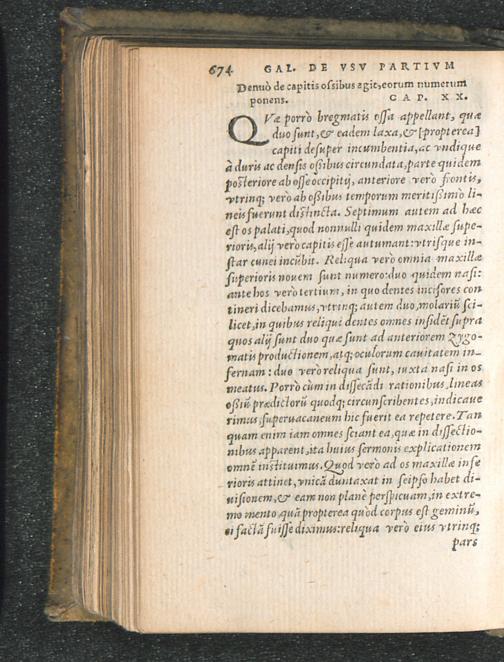 674 GAL. DE VSV PARTIVM
Denuò de capitis ossibus agit, eorum numerum
ponens. CAP. XX.
QVæ porrò bregmatis ossa appellant, quæ
duo sunt, & eadem laxa, & [propterea]
capiti desuper incumbentia, ac vndique
à duris ac densis ossibus circundata, parte quidem
posteriore ab osse occipitij, anteriore verò frontis,
vtrinq; verò ab ossibus temporum meritissimò li-
neis fuerunt distincta. Septimum autem ad hæc
est os palati, quod nonnulli quidem maxillæ supe-
rioris, alij verò capitis esse autumant: vtrisque in-
star cunei incūbit. Reliqua verò omnia maxillæ
superioris nouem sunt numero: duo quidem nasi:
ante hos verò tertium, in quo dentes incisores con
tineri dicebamus, vtrinq; autem duo, molariū sci-
licet, in quibus reliqui dentes omnes insidēt: supra
quos alij sunt duo quæ sunt ad anteriorem Zygo-
matis productionem, atq; oculorum cauitatem in-
fernam: duo verò reliqua sunt, iuxta nasi in os
meatus. Porrò cùm in dissecādi rationibus, lineas
ossiū prædictorū quodq; circunscribentes, indicaue
rimus, superuacaneum hic fuerit ea repetere. Tan
quam enim iam omnes sciant ea, quæ in dissectio-
nibus apparent, ita huius sermonis explicationem
omnē instituimus. Quod verò ad os maxillæ infe
rioris attinet, vnicā duntaxat in seipso habet di-
uisionem, & eam non planè perspicuam, in extre-
mo mento quā propterea quòd corpus est geminū,
ei factā fuisse diximus: reliqua verò eius vtrinq;
pars